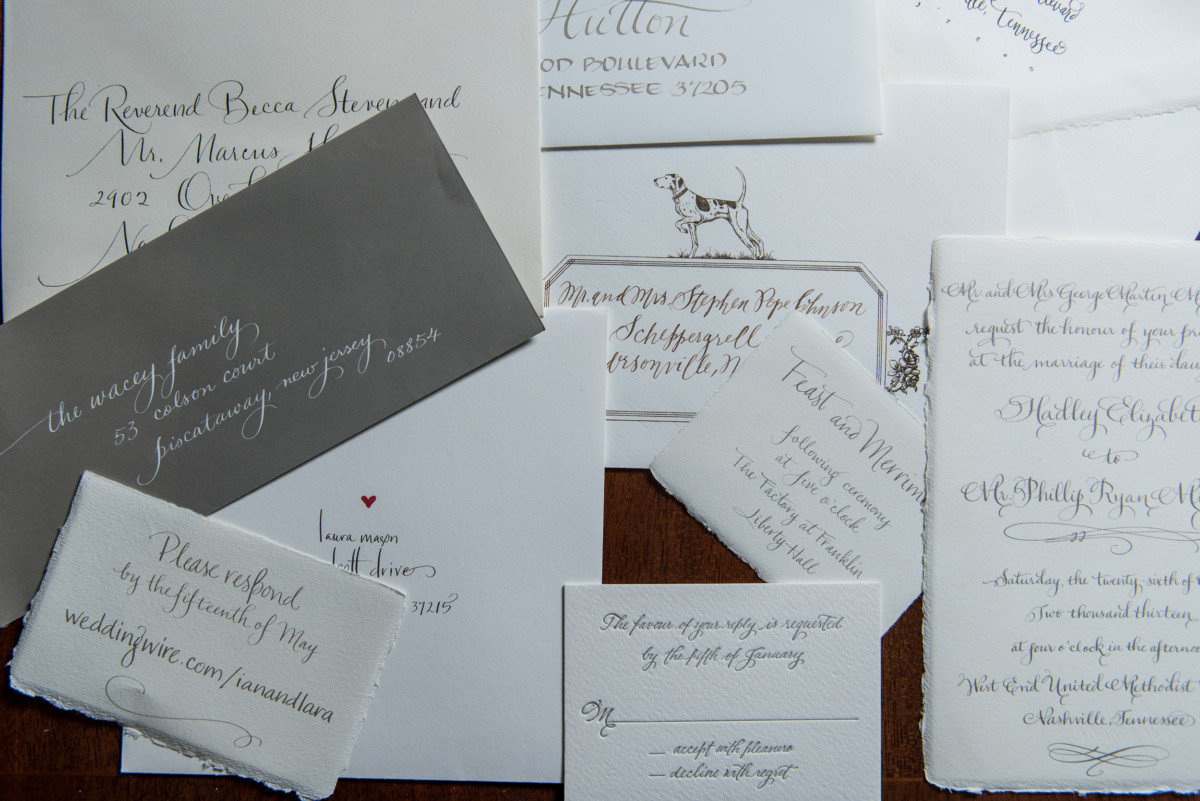 The Reverend Becca Stevens and
Mr. Marcus
2902
Hutton
OD BOULEVARD
ENNESSEE 37205
Tennessee
the wacey family
53 colson court
piscataway, new jersey
08854
Mr. and Mrs. Stephen Pope Johnson
Scheppergrell
rsonville,
Feast and Merrim
following ceremony
at five o'clock
The Factory at Franklin
Liberty Hall
Mr and Mrs George Martin M
request the honour of your pr
at the marriage of their dau
Hadley Elizabet
to
Mr. Phillip Ryan M
Saturday, the twenty sixth of
Two thousand thirteen
at four o'clock in the afterno
West End United Methodist
Nashville, Tennessee
laura mason
drive
37215
Please respond
by the fifteenth of May
weddingwire.com/ianandlara
The favour of your reply is requested
by the fifth of January
M
accept with pleasure
decline with regret